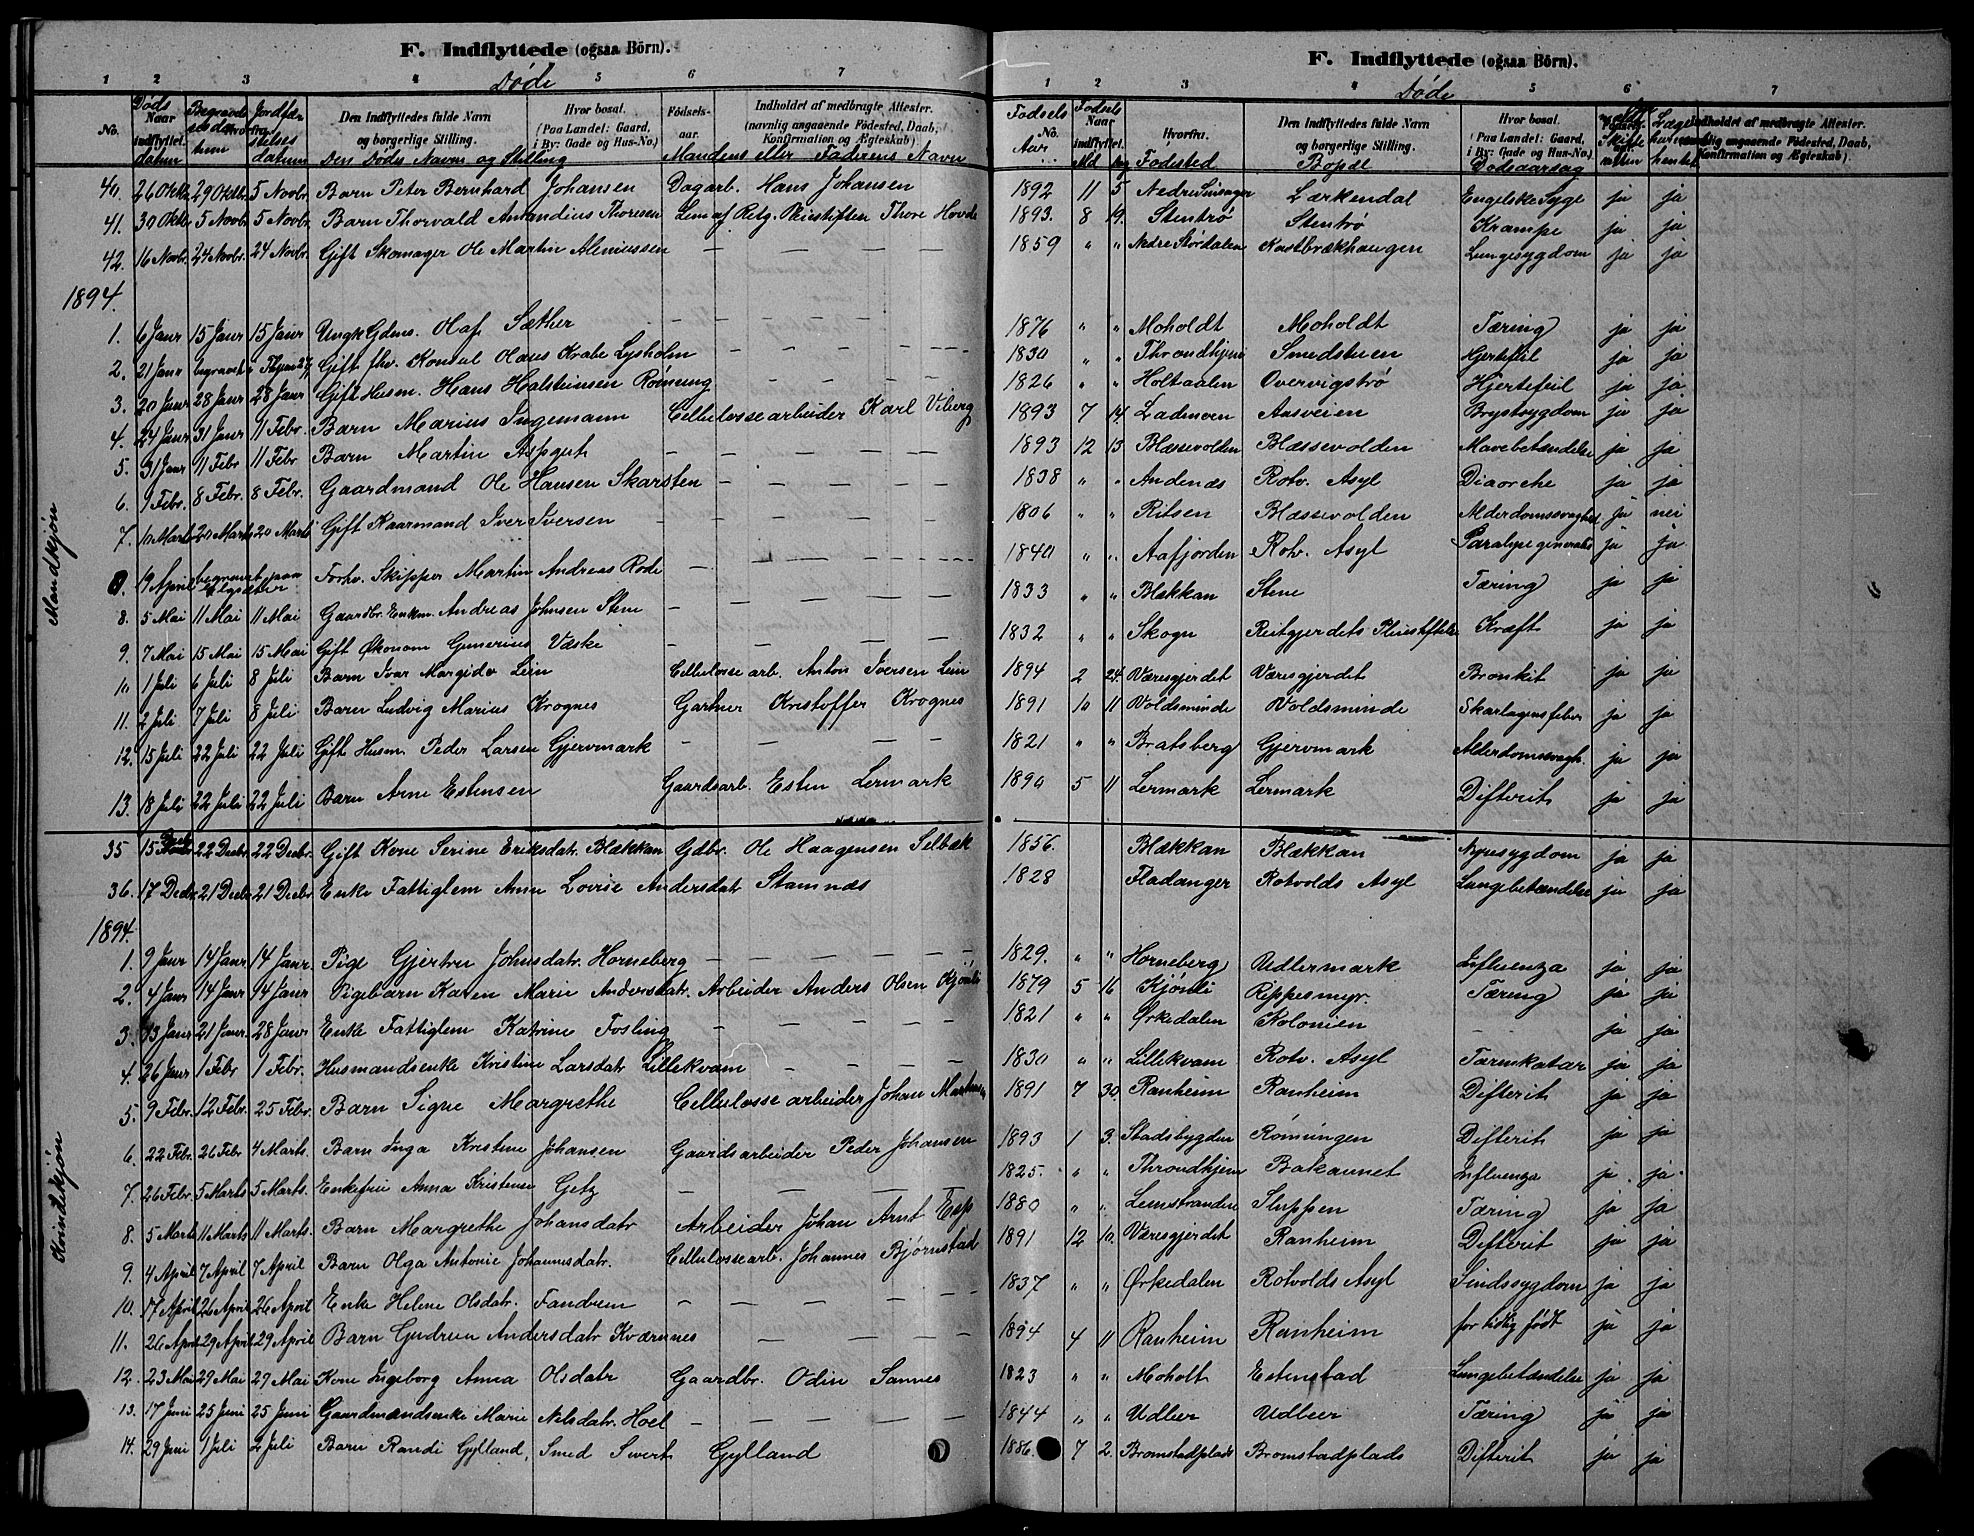 F. Indflyttede (ogsaa Börn).
Döde
1 2 3 4 5 6 7
No. Naar indflyttet. Hvorfra. Den Indflyttedes fulde Navn og borgerlige Stilling. Hvor bosat. (Paa Landet: Gaard, i By: Gade og Hus-No.) Fødsels-aar. Indholdet af medbragte Attester. (navnlig angaaende Födested, Daab, Konfirmation og Ægteskab).
Döds datum Begravelses datum Jordfæstelses datum Den Dödes Navn og Stilling Mandens eller Faderens Navn
40. 26 Oktbr. 29 Oktbr. 5 Novbr. Barn Peter Bernhard Johansen Dagarb. Hans Johansen
41. 30 Oktbr. 5 Novbr. 5 Novbr. Barn Thorvald Amandius Thoresen Lem af Retg. Pleiestiften Thore Hovde
42. 16 Novbr. 24 Novbr. 24 Novbr. Gift Skomager Ole Martin Aleniussen — —
1894.
1. 6 Janr 15 Janr 15 Janr Ungk. Gdms. Olaf Sæther — —
2. 21 Janr begravet Gift fhv. Konsul Claus Krabe Lysholm — —
3. 20 Janr 28 Janr 28 Janr Gift Husm. Hans Halsteinsen Rönning — —
4. 24 Janr 31 Janr 11 Febr. Barn Marius Ingemann Cellulosse arbeider Karl Viberg
5. 31 Janr 11 Febr 11 Febr Barn Martin Aspquit — —
6. 1 Febr. 8 Febr. 8 Febr. Gaardmand Ole Hansen Skarsten — —
7. 10 Marts 20 Marts 20 Marts Gift Kaarmand Iver Iversen — —
19 April begravet paa Forhv. Skipper Martin Andreas Rode — —
8. 5 Mai 11 Mai 11 Mai Gaardbr. Enkm. Andreas Johnsen Stene — —
9. 7 Mai 15 Mai 15 Mai Gift Økonom Gunerius Væske — —
10 1 Juli 6 Juli 8 Juli Barn Ivar Margido Lein Cellulosse arb. Anton Iversen Lein
11. 2 Juli 7 Juli 8 Juli Barn Ludvig Marius Krognes Gartner Kristoffer Krognes
12. 15 Juli 22 Juli 22 Juli Gift Husm. Peder Larsen Gjervmark — —
13. 18 Juli 22 Juli 22 Juli Barn Arne Estensen Gaardsarb. Esten Lermark
Mandkjön
35 15 Decbr 22 Decbr. 22 Decbr. Gift Kone Serine Eriksdatr. Blækkan Gdbr. Ole Haagensen Selbæk
36. 17 Decbr 21 Decbr 21 Decbr. Enke Fattiglem Ane Lovise Andersdatr Stamnæs
1894.
1. 9 Janr 14 Janr 14 Janr. Pige Gjertru Johnsdatr. Horneberg — —
2. 4 Janr 14 Janr 14 Janr Pigebarn Karen Marie Andersdatr. Arbeider Anders Olsen Kjönli
3. 13 Janr 21 Janr. 28 Janr Enke Fattiglem Katrine Fosling — —
4. 26 Janr 1 Febr 1 Febr. Husmandsenke Kristine Larsdatr Lillekvam — —
5. 9 Febr. 12 Febr. 25 Febr. Barn Signe Margrethe Cellulosse arbeider Johan
6. 22 Febr. 26 Febr 4 Marts. Barn Inga Kristine Johansen Gaardsarbeider Peder Johansen
7. 26 Febr. 5 Marts 5 Marts. Enkefru Anna Kristense Getz — —
8. 5 Marts 11 Marts 11 Marts. Barn Margrethe Johansdatr Arbeider Johan Arnt Esp
9. 4 April 7 April 7 April Barn Olga Antonie Johannsdatr. Cellulosse arb. Johannes Bjørnstad
10. 17 April 26 April 26 April Enke Helene Olsdatr. Fandrem — —
11. 26 April 29 April 29 April Barn Gudrun Andersdatr Kværnnes — —
12. 23 Mai 29 Mai 29 Mai Kone Ingeborg Anna Olsdatr Gaardbr. Odin Sannes
13. 17 Juni 25 Juni 25 Juni Gaardmandsenke Marie Nilsdatr. Hoel — —
14. 29 Juni 1 Juli 2 Juli Barn Randi Gylland, Smed Sivert Gylland
Kvindekjön
F. Indflyttede (ogsaa Börn).
Döde
1 2 3 4 5 6 7
No. Naar indflyttet. Hvorfra. Den Indflyttedes fulde Navn og borgerlige Stilling. Hvor bosat. (Paa Landet: Gaard, i By: Gade og Hus-No.) Indholdet af medbragte Attester. (navnlig angaaende Födested, Daab, Konfirmation og Ægteskab).
Fødsels Aar Fødsels Md Dag Fødested Bopæl Dødsaarsag
1892 11 5 Nedre Lerkendal Engelske Syge ja ja
1893. 8 19. Stentrö Stentrö Krampe ja ja
1859 " " Nedre Stördalen Kastbrækhaugen Lungesygdom ja ja
1876 " " Moholdt Moholdt Tæring ja ja
1830 " " Throndhjem Smedstuen Hjertefeil ja ja
1826 " " Holtaalen Overvigströ Hjertefeil ja ja
1893 7 14. Ladmoen Aasveien Brystsygdom ja ja
1893 12 13 Blæssevolden Blæssevolden Mavebetændelse ja ja
1838 " " Andenæs Rotv. Asyl Diaorche ja ja
1806 " " Ritsen Blæssevolden Alderdomssvaghed ja nei
1840 " " Aafjorden Rotv. Asyl Paralyse generalis ja ja
1833 " " Blækkan Stene Tæring ja ja
1832 " " Skogn Reitgjerdets Pleiestiftelse Kræft ja ja
1894 2 24. Væresgjerdet Væresgjerdet Bronkit ja ja
1891 10 11 Voldsminde Voldsminde Skarlagensfeber ja ja
1821 " " Bratsberg Gjervmark Alderdomssvagh. ja ja
1890 5 11 Lermark Lermark Difterit ja ja
1856. Blækkan Blækkan Nyresygdom ja ja
1828 Fladanger Rotvolds Asyl Lungebetændelse ja ja
1829. " " Horneberg Udlermark Influenza ja ja
1879 5 16 Kjönli Reppesmyr. Tæring ja ja
1821 " " Ørkedalen Kolonien — ja ja
1830 " " Lillekvam Rotv. Asyl Tarmkatar ja ja
1891 7 30. Ranheim Ranheim Difterit ja ja
1893 1 3. Stadsbygden Rönningen Difterit ja ja
1825. " " Throndhjem Bakaunet Influenza ja ja
1880 " " Leinstranden Sluppen Tæring ja ja
1891 12 10. Væresgjerdet Ranheim Difterit ja ja
1837 " " Ørkedalen Rotvolds Asyl Sindssygdom ja ja
1894 4 11 Ranheim Ranheim for tidlig født ja ja
1823 " " Moholt Estenstad Lungebetændelse ja ja
1844 " " Udleer Udleer Tæring ja ja
1886. 7 2 Bromstadplads Bromstadplads Difterit ja ja